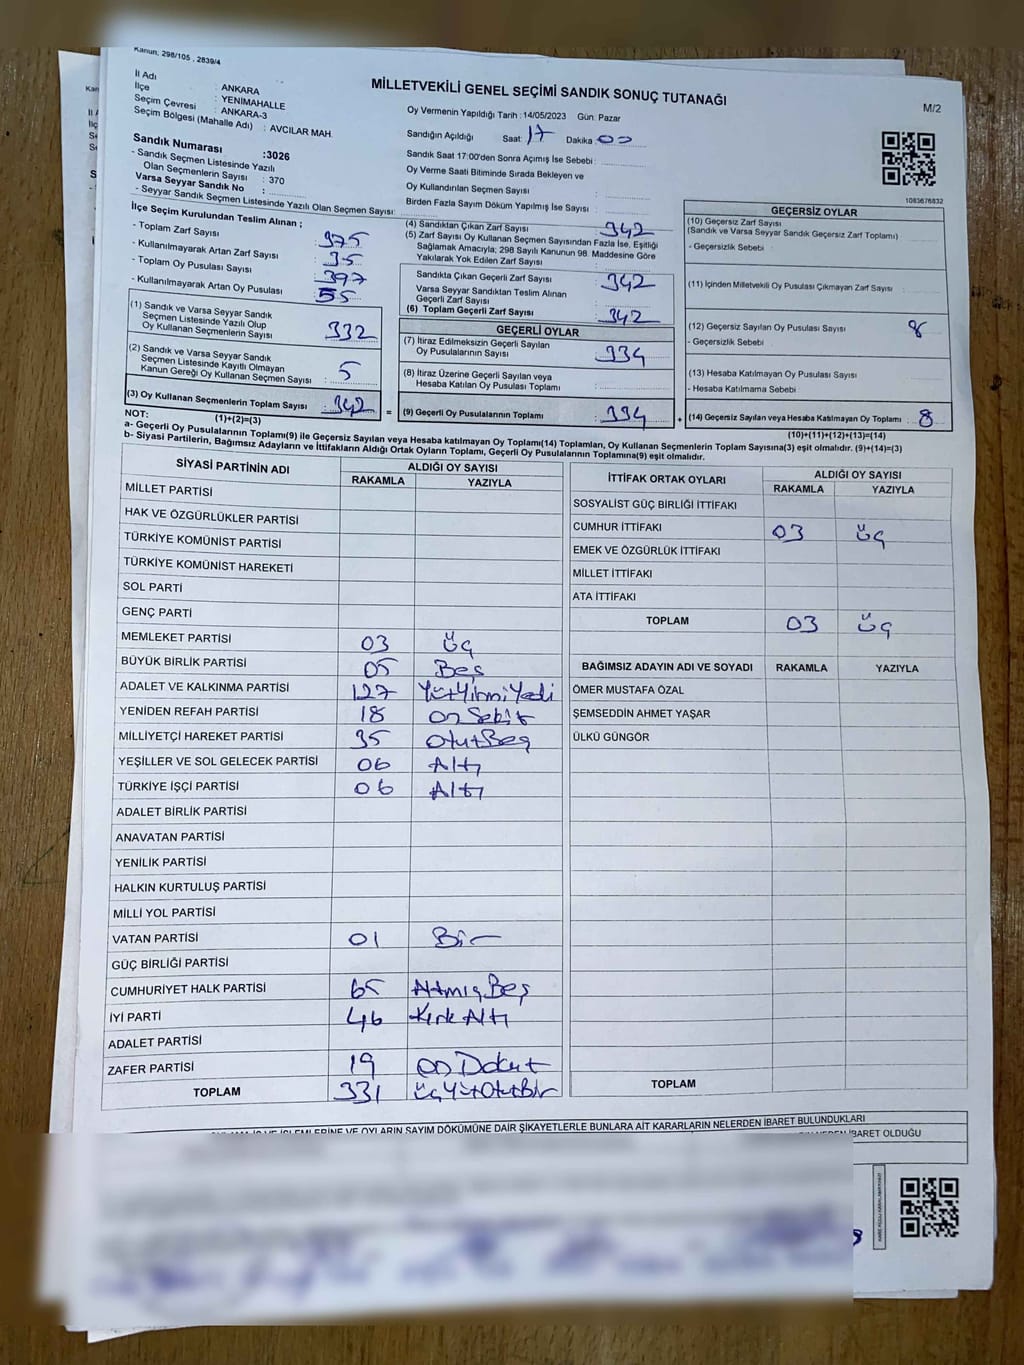 Kanun, 298/105 , 2839/4
MİLLETVEKİLİ GENEL SEÇİMİ SANDIK SONUÇ TUTANAĞI
M/2
İl Adı : ANKARA
İlçe : YENİMAHALLE
Seçim Çevresi : ANKARA-3
Seçim Bölgesi (Mahalle Adı) : AVCILAR MAH.
Oy Vermenin Yapıldığı Tarih :14/05/2023 Gün: Pazar
Sandığın Açıldığı Saat: 17 Dakika: 00
Sandık Saat 17:00'den Sonra Açımış İse Sebebi :
Oy Verme Saati Bitiminde Sırada Bekleyen ve
Oy Kullandırılan Seçmen Sayısı :
Birden Fazla Sayım Döküm Yapılmış İse Sayısı :
Sandık Numarası :3026
- Sandık Seçmen Listesinde Yazılı
Olan Seçmenlerin Sayısı : 370
Varsa Seyyar Sandık No :
- Seyyar Sandık Seçmen Listesinde Yazılı Olan Seçmen Sayısı:
1083676832
İlçe Seçim Kurulundan Teslim Alınan ;
- Toplam Zarf Sayısı : 375
- Kullanılmayarak Artan Zarf Sayısı : 35
- Toplam Oy Pusulası Sayısı : 397
- Kullanılmayarak Artan Oy Pusulası : 55
(1) Sandık ve Varsa Seyyar Sandık
Seçmen Listesinde Yazılı Olup
Oy Kullanan Seçmenlerin Sayısı : 332
(2) Sandık ve Varsa Seyyar Sandık
Seçmen Listesinde Kayıtlı Olmayan
Kanun Gereği Oy Kullanan Seçmen Sayısı : 5
(3) Oy Kullanan Seçmenlerin Toplam Sayısı : 342
(1)+(2)=(3)
(4) Sandıktan Çıkan Zarf Sayısı : 342
(5) Zarf Sayısı Oy Kullanan Seçmen Sayısından Fazla İse, Eşitliği
Sağlamak Amacıyla; 298 Sayılı Kanunun 98. Maddesine Göre
Yakılarak Yok Edilen Zarf Sayısı :
Sandıkta Çıkan Geçerli Zarf Sayısı : 342
Varsa Seyyar Sandıktan Teslim Alınan
Geçerli Zarf Sayısı :
(6) Toplam Geçerli Zarf Sayısı : 342
GEÇERLİ OYLAR
(7) İtiraz Edilmeksizin Geçerli Sayılan
Oy Pusulalarının Sayısı : 334
(8) İtiraz Üzerine Geçerli Sayılan veya
Hesaba Katılan Oy Pusulası Toplamı :
= (9) Geçerli Oy Pusulalarının Toplamı : 334
GEÇERSİZ OYLAR
(10) Geçersiz Zarf Sayısı
(Sandık ve Varsa Seyyar Sandık Geçersiz Zarf Toplamı)
- Geçersizlik Sebebi :
(11) İçinden Milletvekili Oy Pusulası Çıkmayan Zarf Sayısı :
(12) Geçersiz Sayılan Oy Pusulası Sayısı : 8
- Geçersizlik Sebebi :
(13) Hesaba Katılmayan Oy Pusulası Sayısı :
- Hesaba Katılmama Sebebi :
+ (14) Geçersiz Sayılan veya Hesaba Katılmayan Oy Toplamı : 8
(10)+(11)+(12)+(13)=(14)
NOT:
a- Geçerli Oy Pusulalarının Toplamı(9) ile Geçersiz Sayılan veya Hesaba katılmayan Oy Toplamı(14) Toplamları, Oy Kullanan Seçmenlerin Toplam Sayısına(3) eşit olmalıdır. (9)+(14)=(3)
b- Siyasi Partilerin, Bağımsız Adayların ve İttifakların Aldığı Ortak Oyların Toplamı, Geçerli Oy Pusulalarının Toplamına(9) eşit olmalıdır.
SİYASİ PARTİNİN ADI ALDIĞI OY SAYISI
RAKAMLA YAZIYLA
MİLLET PARTİSİ
HAK VE ÖZGÜRLÜKLER PARTİSİ
TÜRKİYE KOMÜNİST PARTİSİ
TÜRKİYE KOMÜNİST HAREKETİ
SOL PARTİ
GENÇ PARTİ
MEMLEKET PARTİSİ 03 Üç
BÜYÜK BİRLİK PARTİSİ 05 Beş
ADALET VE KALKINMA PARTİSİ 127 YüzYirmiYedi
YENİDEN REFAH PARTİSİ 18 on Sekiz
MİLLİYETÇİ HAREKET PARTİSİ 35 OtuzBeş
YEŞİLLER VE SOL GELECEK PARTİSİ 06 Altı
TÜRKİYE İŞÇİ PARTİSİ 06 Altı
ADALET BİRLİK PARTİSİ
ANAVATAN PARTİSİ
YENİLİK PARTİSİ
HALKIN KURTULUŞ PARTİSİ
MİLLİ YOL PARTİSİ
VATAN PARTİSİ 01 Bir
GÜÇ BİRLİĞİ PARTİSİ
CUMHURİYET HALK PARTİSİ 65 AltmışBeş
İYİ PARTİ 46 Kırk Altı
ADALET PARTİSİ
ZAFER PARTİSİ 19 on Dokuz
TOPLAM 331 üçYüzOtuzBir
İTTİFAK ORTAK OYLARI ALDIĞI OY SAYISI
RAKAMLA YAZIYLA
SOSYALİST GÜÇ BİRLİĞİ İTTİFAKI
CUMHUR İTTİFAKI 03 Üç
EMEK VE ÖZGÜRLÜK İTTİFAKI
MİLLET İTTİFAKI
ATA İTTİFAKI
TOPLAM 03 Üç
BAĞIMSIZ ADAYIN ADI VE SOYADI RAKAMLA YAZIYLA
ÖMER MUSTAFA ÖZAL
ŞEMSEDDİN AHMET YAŞAR
ÜLKÜ GÜNGÖR
TOPLAM
İŞLEMLERİNE VE OYLARIN SAYIM DÖKÜMÜNE DAİR ŞİKAYETLERLE BUNLARA AİT KARARLARIN NELERDEN İBARET BULUNDUKLARI
İBARET OLDUĞU